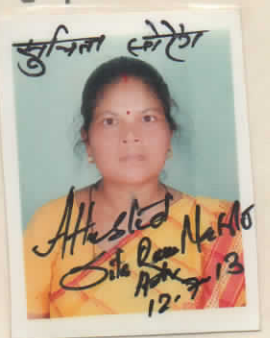 सुचिता सोरेंग
Attested
Sita Ram Mahto
Adv
12.7.13